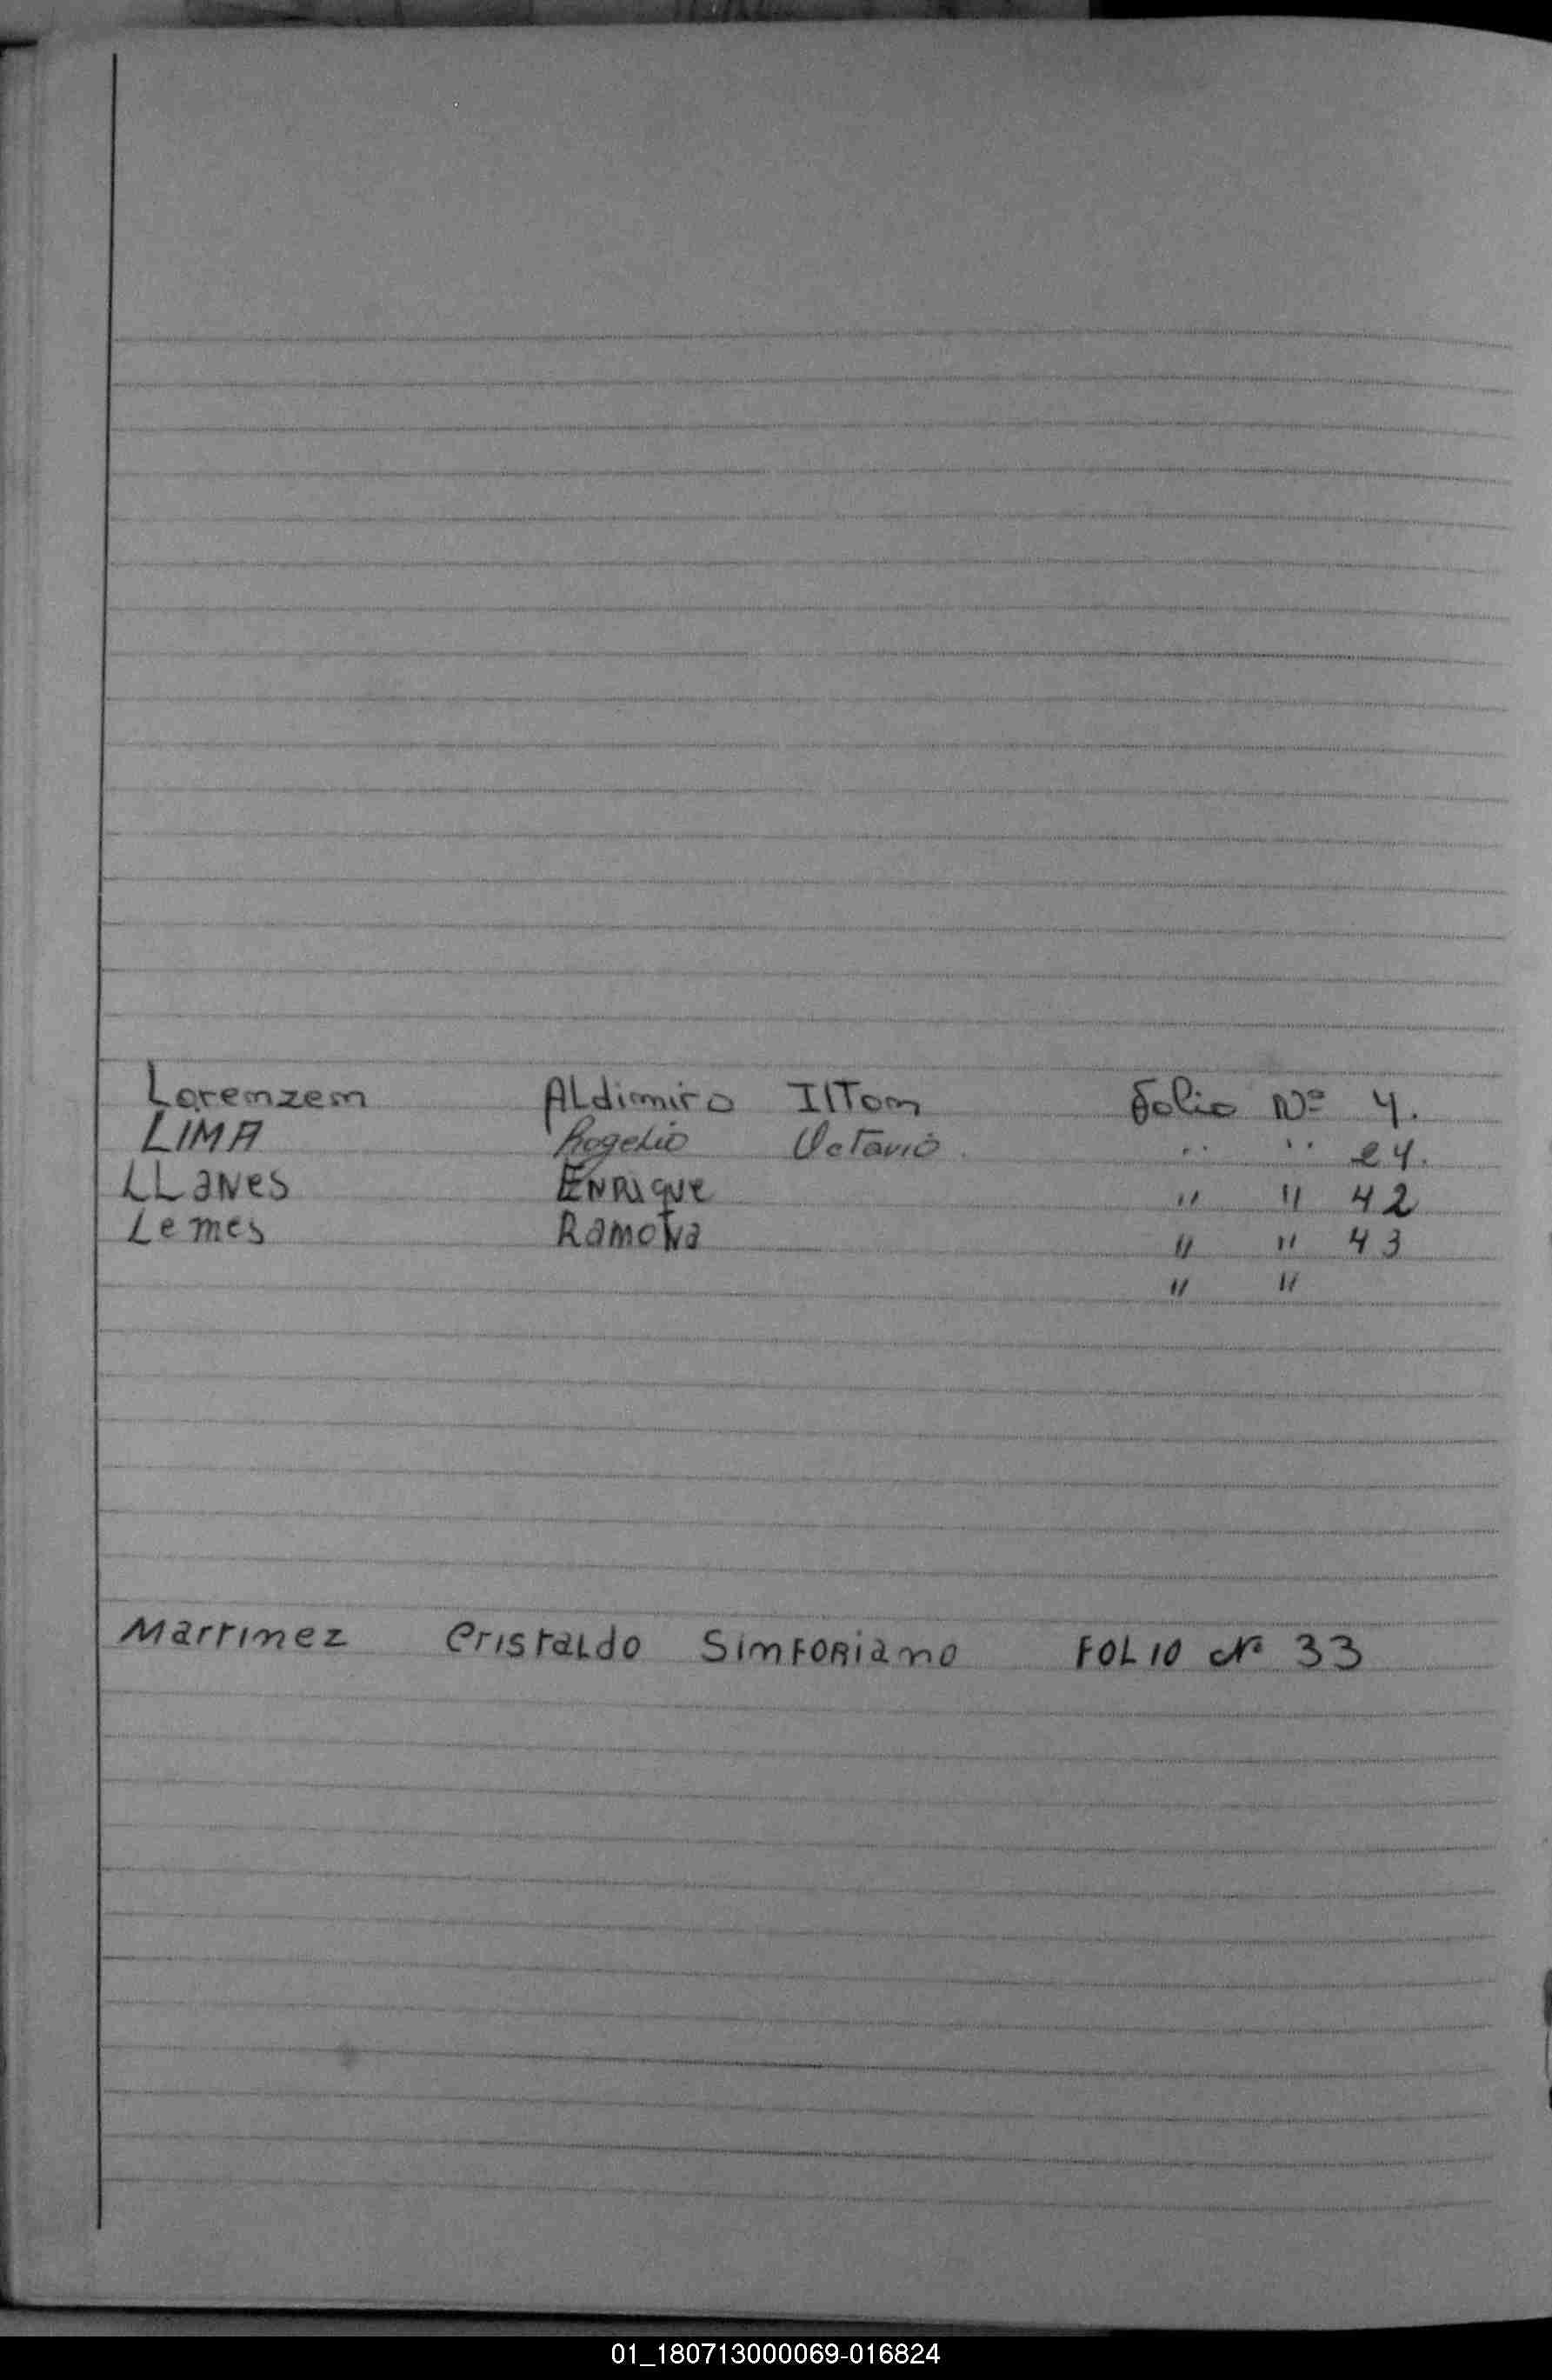 Lorenzem Aldimiro Iltom Folio Nº 4.
LIMA Rogelio Octavio. " " 24.
LLaNes ENRique " " 42
Lemes RamoNa " " 43
" "
Martinez Cristaldo Simforiano FOLIO Nº 33
01_180713000069-016824